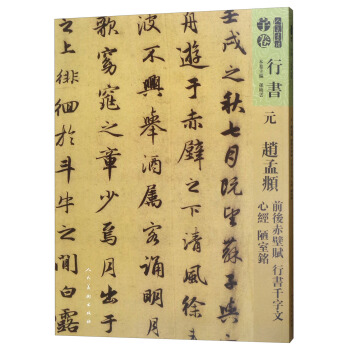 壬戌之秋七月既望蘇子與客
舟遊于赤壁之下清風徐來
波不興舉酒屬客誦明月
歌窈窕之章少焉月出于
之上徘徊於斗牛之間白露
子卷
行書
元
趙孟頫
前後赤壁賦 行書千字文
心經 陋室銘
人民美術出版社